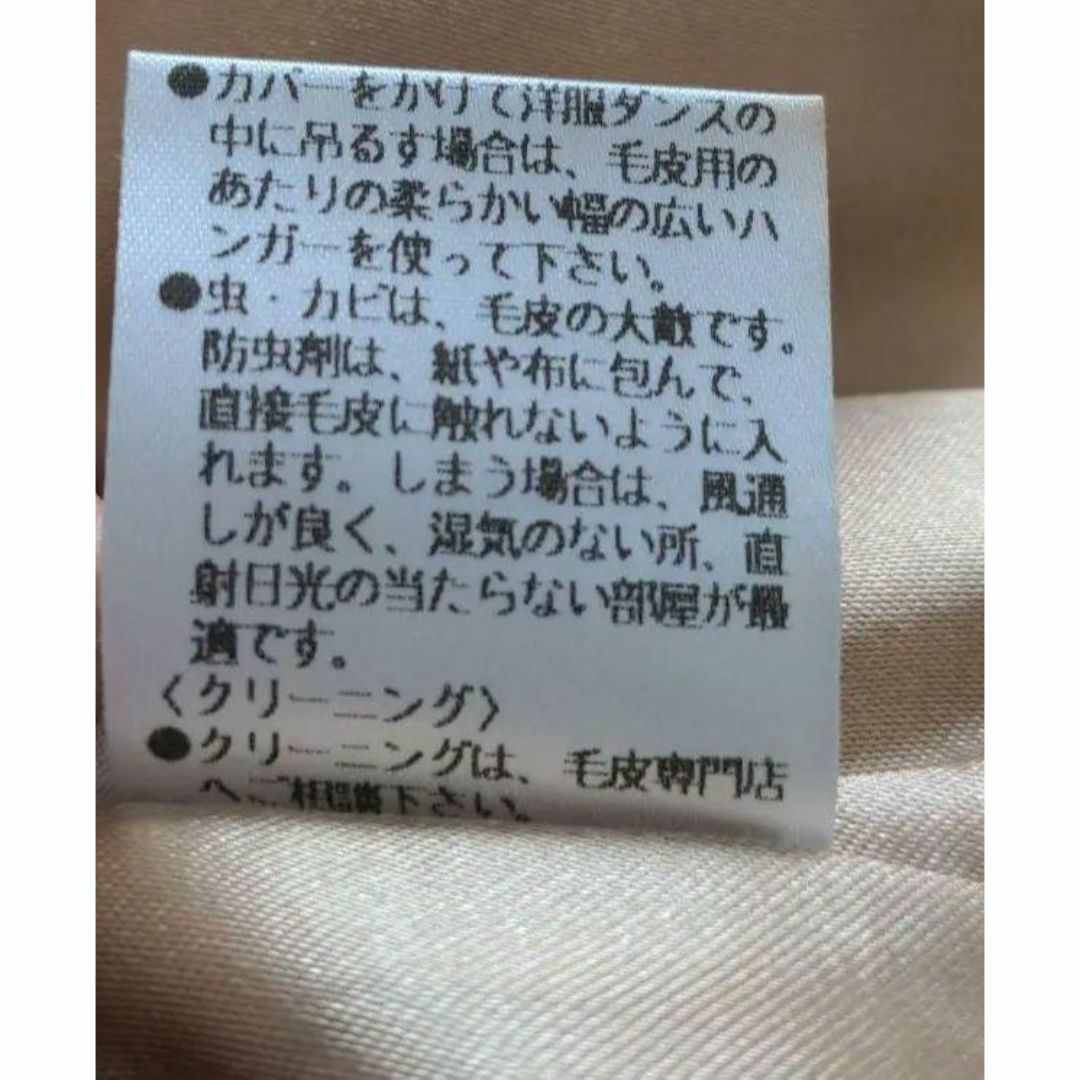 ●カバーをかけて洋服ダンスの
中に吊るす場合は、毛皮用の
あたりの柔らかい幅の広いハ
ンガーを使って下さい。
●虫・カビは、毛皮の大敵です。
防虫剤は、紙や布に包んで、
直接毛皮に触れないように入
れます。しまう場合は、風通
しが良く、湿気のない所、直
射日光の当たらない部屋が最
適です。
〈クリーニング〉
●クリーニングは、毛皮専門店
へご相談下さい。